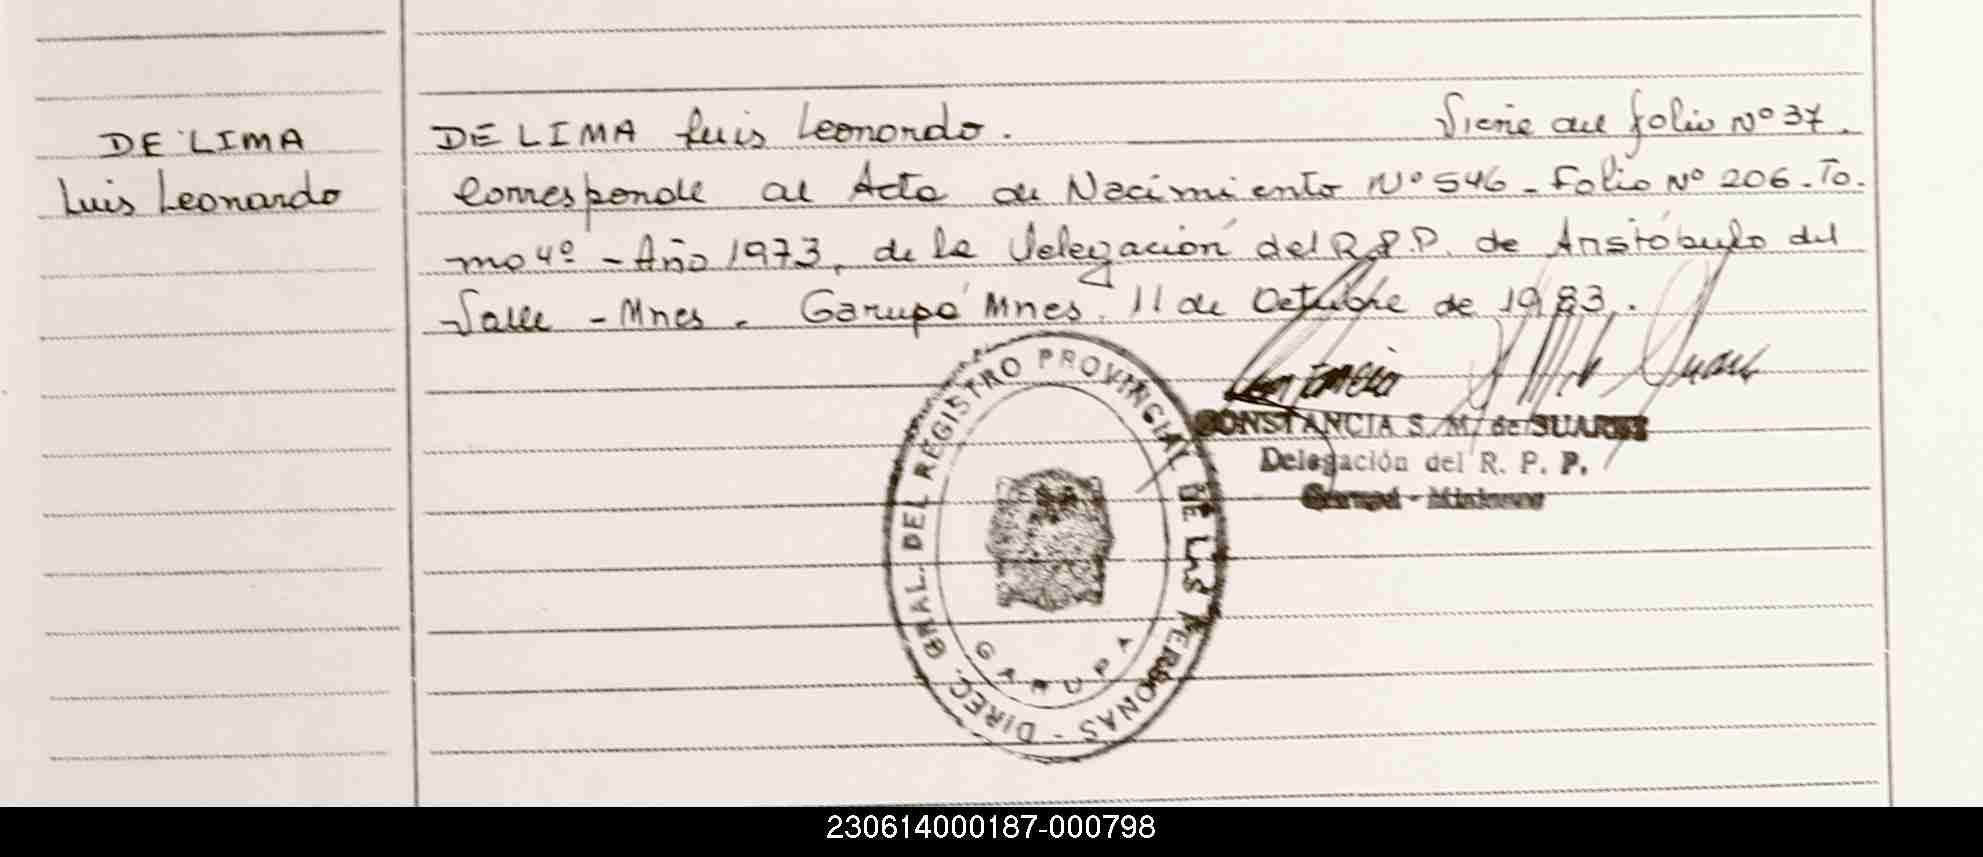 DE LIMA
Luis Leonardo
DE LIMA Luis Leonardo. Viene del folio Nº 37.
Corresponde al Acta de Nacimiento Nº 546 - Folio Nº 206 - To-
mo 4º - Año 1973, de la Delegación del R.P.P. de Aristóbulo del
Valle - Mnes. Garupá Mnes. 11 de Octubre de 1983.
CONSTANCIA S. M. de SUAREZ
Delegación del R. P. P.
Garupá - Misiones
DIREC. GRAL. DEL REGISTRO PROVINCIAL DE LAS PERSONAS -
GARUPA
230614000187-000798